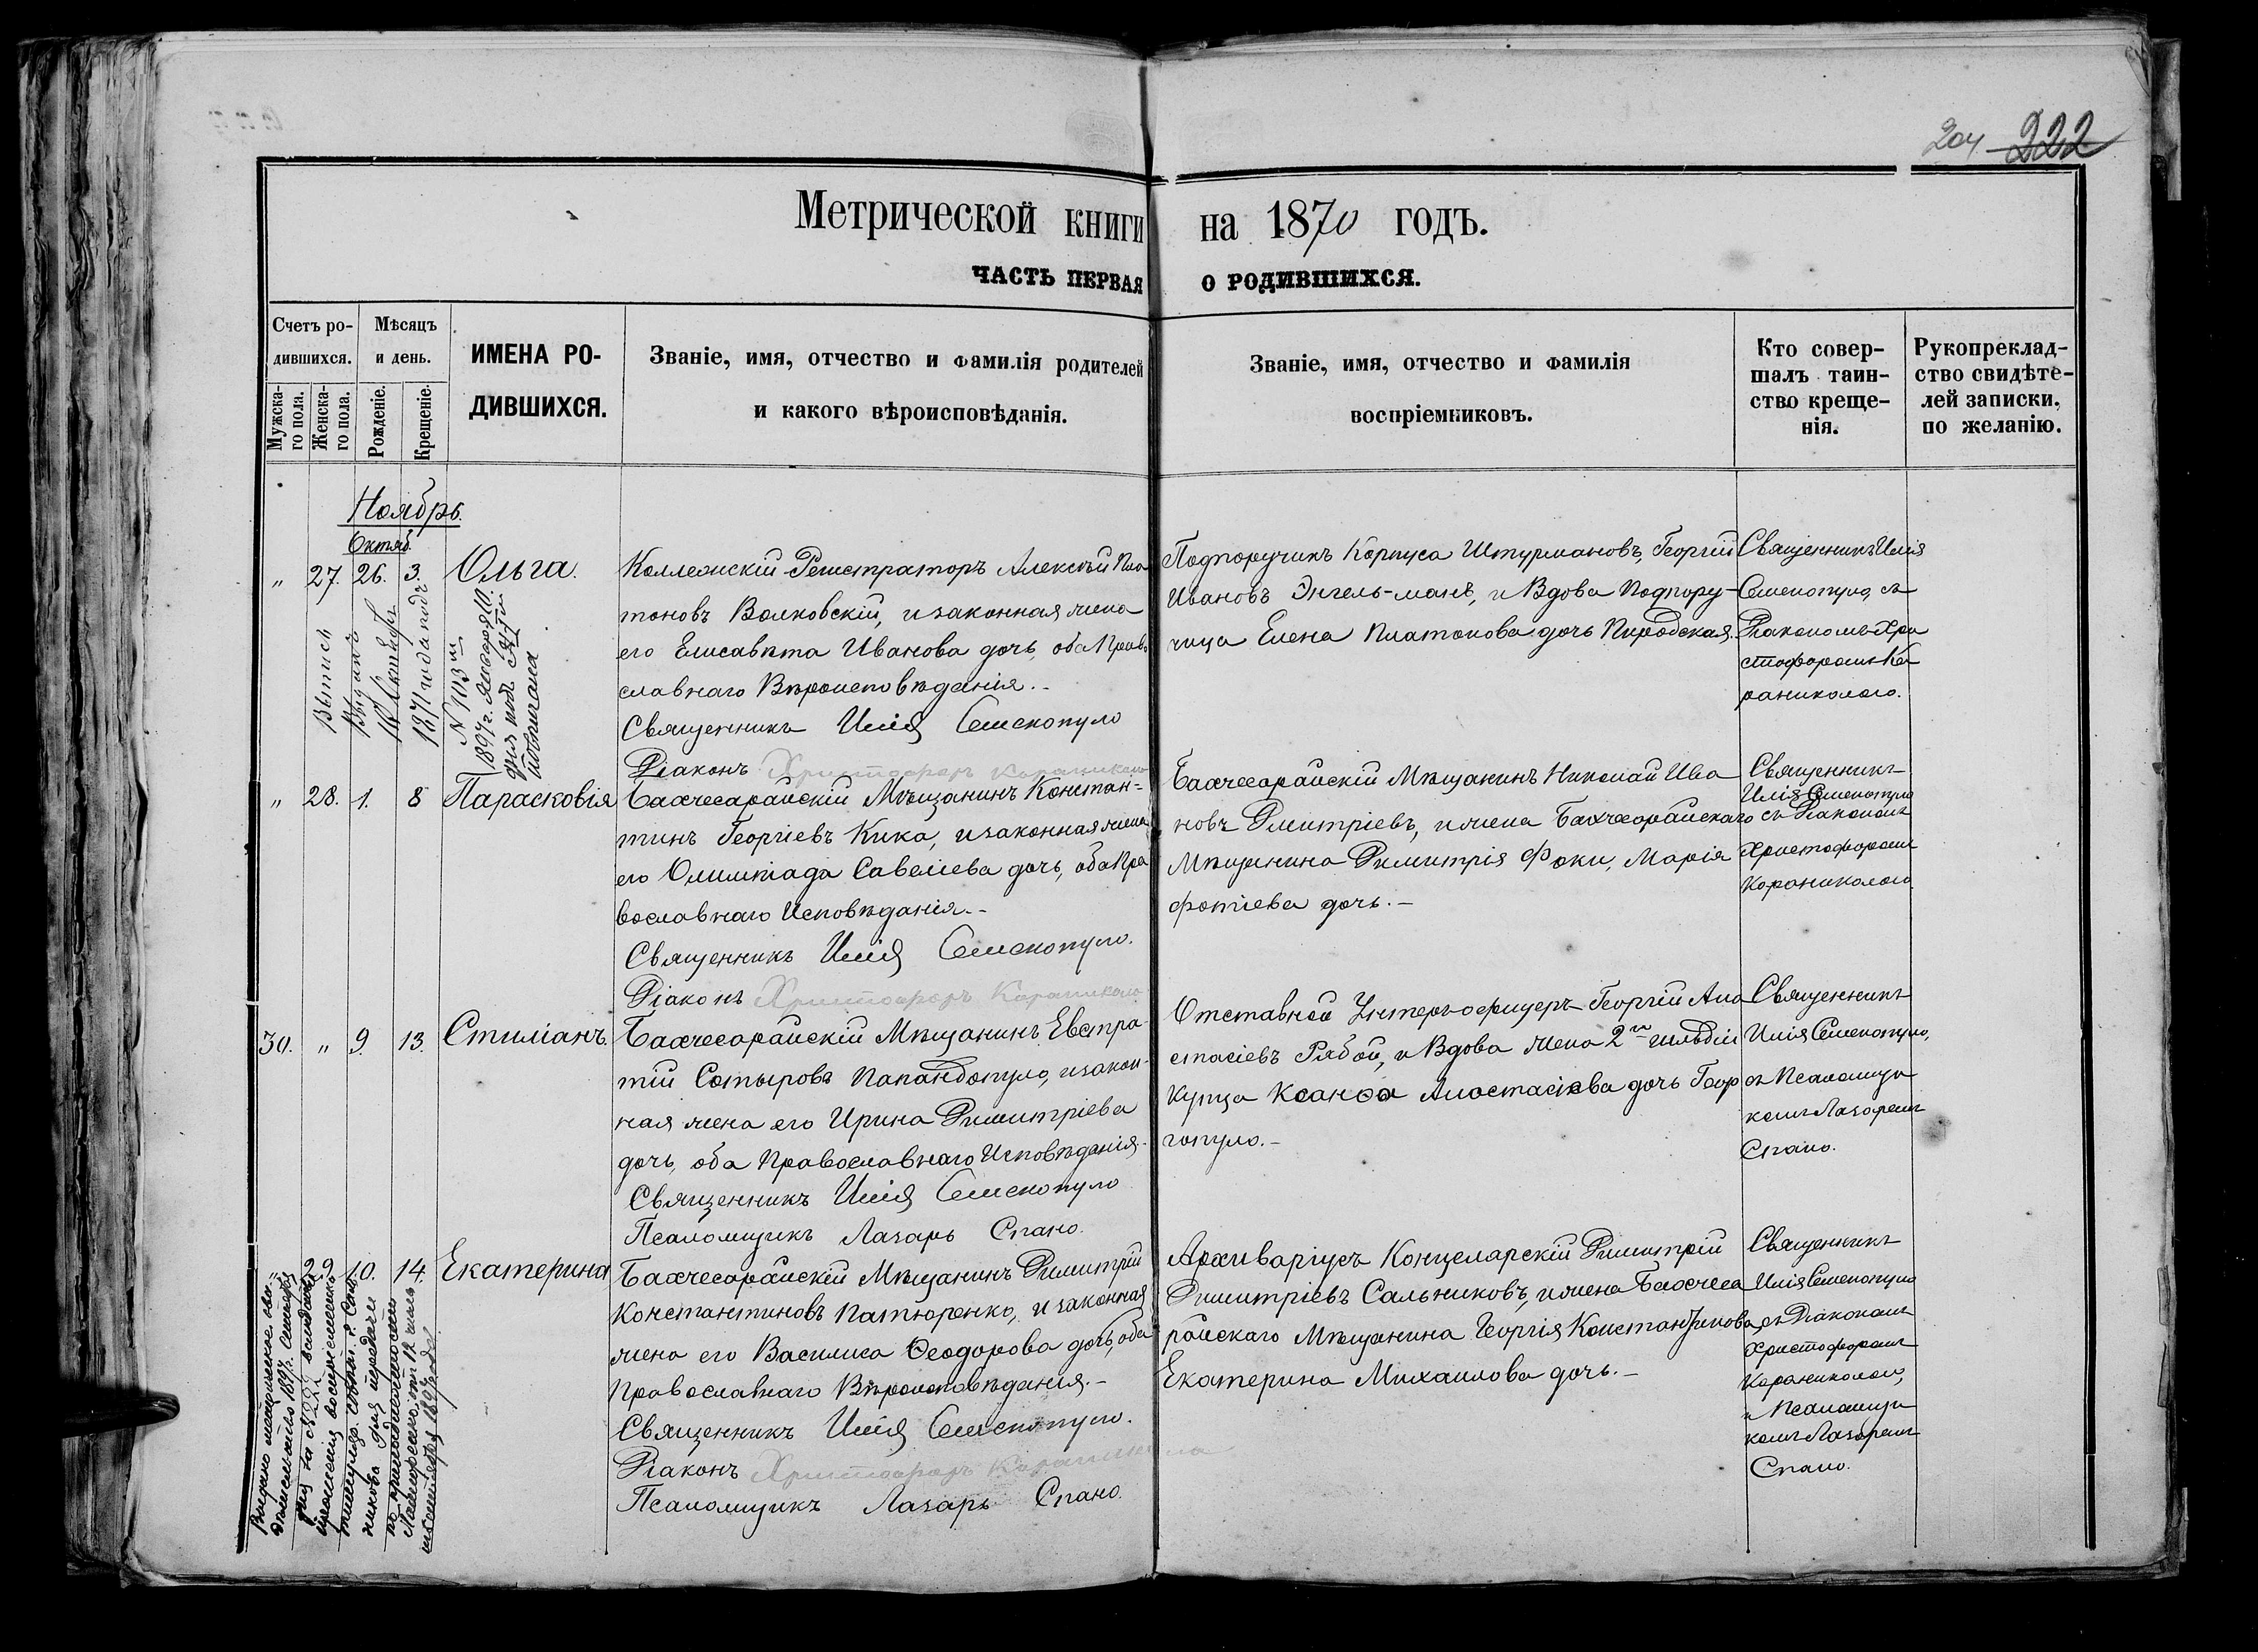 204 222
Метрической книги на 1870 годъ.
ЧАСТЬ ПЕРВАЯ О РОДИВШИХСЯ.
Счетъ ро-
дившихся.
Мужска-
го пола.
Женска-
го пола.
Мѣсяцъ
и день.
Рожденіе.
Крещеніе.
ИМЕНА РО-
ДИВШИХСЯ.
Званіе, имя, отчество и фамилія родителей
и какого вѣроисповѣданія.
Званіе, имя, отчество и фамилія
воспріемниковъ.
Кто совер-
шалъ таин-
ство креще-
нія.
Рукопреклад-
ство свидѣте-
лей записки,
по желанію.
Ноябрь.
Октяб.
„ 27. 26. 3. Ольга.
Коллежскій Регистраторъ Алексѣй Пла
тоновъ Волковскій, и законная жена
его Елисавѣта Иванова дочь, оба Право
славнаго Вѣроисповѣданія.-
Священникъ Илія Семенопуло
Діаконъ Христофоръ Караниколо
Подпоручикъ Корпуса Штурмановъ, Георгій
Ивановъ Энгель-манъ, и Вдова Подпору-
чица Елена Платонова дочь
Священникъ Илія
Семенопуло, съ
Діакономъ Хри
стофоромъ Ка
раниколого.
Выписъ
Выданъ
16 Октября
1871 года подъ
N 103 m
1897 г. Января 10.
„ 28. 1. 8 Парасковія
Бахчесарайскій Мѣщанинъ Констан-
тинъ Георгіевъ Кика, и законная жена
его Олимпіада Савеліева дочь, оба Пра
вославнаго Исповѣданія.-
Священникъ Илія Семенопуло.
Діаконъ Христофоръ Караниколо
Бахчесарайскій Мѣщанинъ Николай Ива
новъ Дмитріевъ, и жена Бахчесарайскаго
Мѣщанина Димитрія Фоки, Марія
Фотіева дочь.-
Священникъ
Илія Семенопуло
съ Діакономъ
Христофоромъ
Караниколого
30. „ 9. 13. Стиліанъ.
Бахчесарайскій Мѣщанинъ Евстра-
тій Сотыровъ Папандопуло, и закон-
ная жена его Ирина Димитріева
дочь, оба Православнаго Исповѣданія.
Священникъ Илія Семенопуло
Псаломщикъ Лазарь Спано.
Отставной Унтеръ-офицеръ Георгій Ана
стасіевъ Рябой, и Вдова жена 2й гильдіи
Купца Ксанфа Анастасіева дочь Геор
гопуло.-
Священникъ
Илія Семенопуло,
съ Псаломщи
комъ Лазаремъ
Спано.
„ 29. 10. 14. Екатерина
Бахчесарайскій Мѣщанинъ Димитрій
Константиновъ Патюренко, и законная
жена его Василиса Ѳеодорова дочь, оба
Православнаго Вѣроисповѣданія.-
Священникъ Илія Семенопуло.
Діаконъ Христофоръ Караниколо
Псаломщикъ Лазарь Спано.
Архиваріусъ Концелярскій Димитрій
Димитріевъ Сальниковъ, и жена Бахчеса
райскаго Мѣщанина Георгія Константинова,
Екатерина Михаилова дочь.-
Священникъ
Илія Семенопуло
съ Діакономъ
Христофоромъ
Караниколого,
и Псаломщи
комъ Лазаремъ
Спано.
Выдано метрическое сви-
дѣтельство 1897 г. Сентября